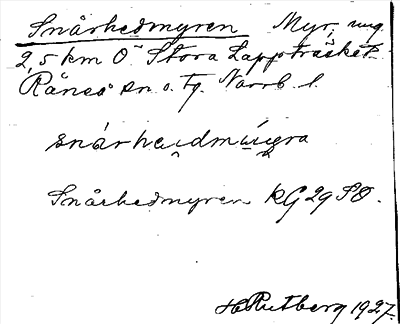 Snårhedmyren Myr, ung.
2,5 km O Stora Lappträsket
Råneå sn. o. tg. Norrb. l.
Snårhedmyren RG 29 SO.
H Rutberg 1927.